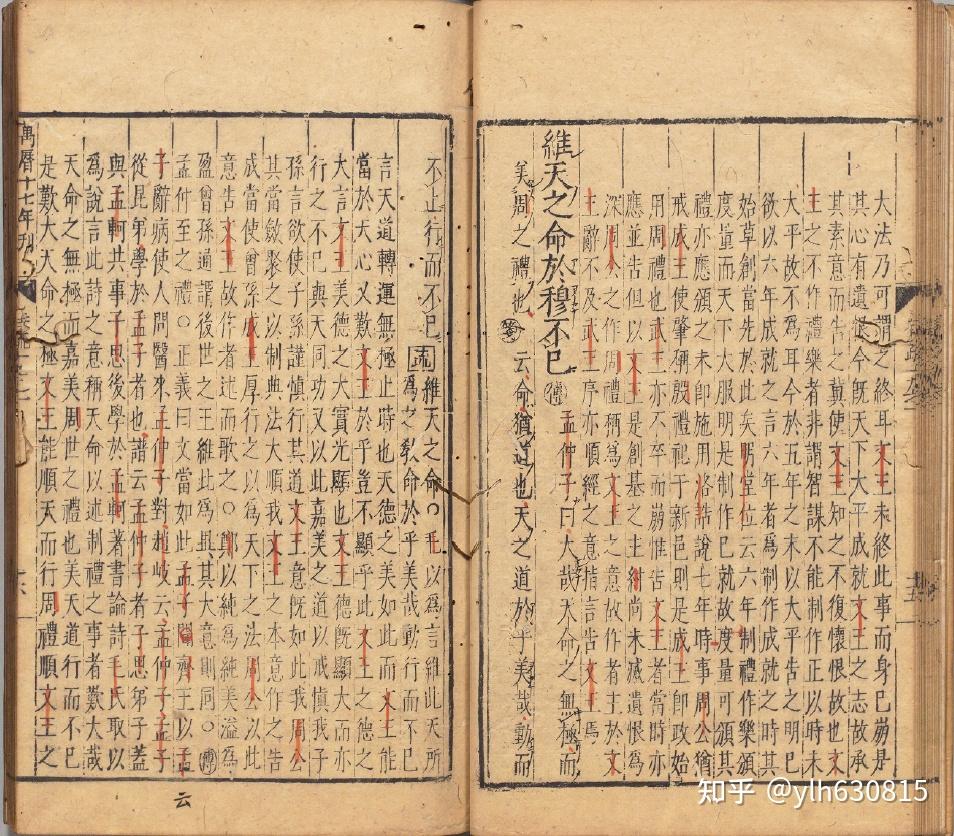 大法乃可謂之終耳文王未終此事而身已崩是
其心有遺恨今既天下大平成就文王之志故承
其素意而告之冀使文王知之不復懷恨故也文
王之不作禮樂者非謂智謀不能制作正以時未
大平故不爲耳今於五年之末以大平告之明已
欲以六年成就之言六年者爲制作成就之時其
始草創當先於此矣明堂位云六年制禮作樂頒
度量而天下大服明是制作已就故度量可頒其
禮亦應頒之未即施用洛誥說七年時事周公猶
戒成王使肇稱殷禮祀于新邑則是成王即政始
用周禮也武王亦不卒而崩惟告文王者當時亦
應並告但以文王是創基之主紂尚未滅遺恨爲
深周公之作周禮稱爲文王之意故作者主於文
王辭不及武王序亦順經之意指言告文王焉
維天之命於穆不已傳孟仲子曰大哉天命之無極而
美周之禮也箋云命猶道也天之道於乎美哉動而
不止行而不已疏維天之命○毛以爲言維此天所
爲之教命於乎美哉動行而不已
言天道轉運無極止時也天德之美如此而文王能
當於天心又歎文王於乎豈不顯乎此文王之德之
大言文王美德之大實光顯也文王德既顯大而亦
行之不已與天同功又以此嘉美之道以戒愼我子
孫言欲使子孫謹愼行其道文王意既如此我周公
其當斂聚之以制典法大順我文王之本意作之告
成當使曾孫成王厚行之以爲天下之法周公以此
意告文王故作者述而歌之○鄭以純爲純美溢爲
盈曾孫通謂後世之王維此爲異其大意則同○傳
孟仲至之禮○正義曰文當如此孟子云齊王以孟
子辭病使人問醫來孟仲子對趙岐云孟仲子孟子
從昆弟學於孟子者也譜云孟仲子者子思弟子蓋
與孟軻共事子思後學於孟軻著書論詩毛氏取以
爲說言此詩之意稱天命以述制禮之事者歎大哉
天命之無極而嘉美周世之禮也美天道行而不已
是歎大天命之極文王能順天而行周禮順文王之
萬曆十七年刊
云
知乎 @ylh630815